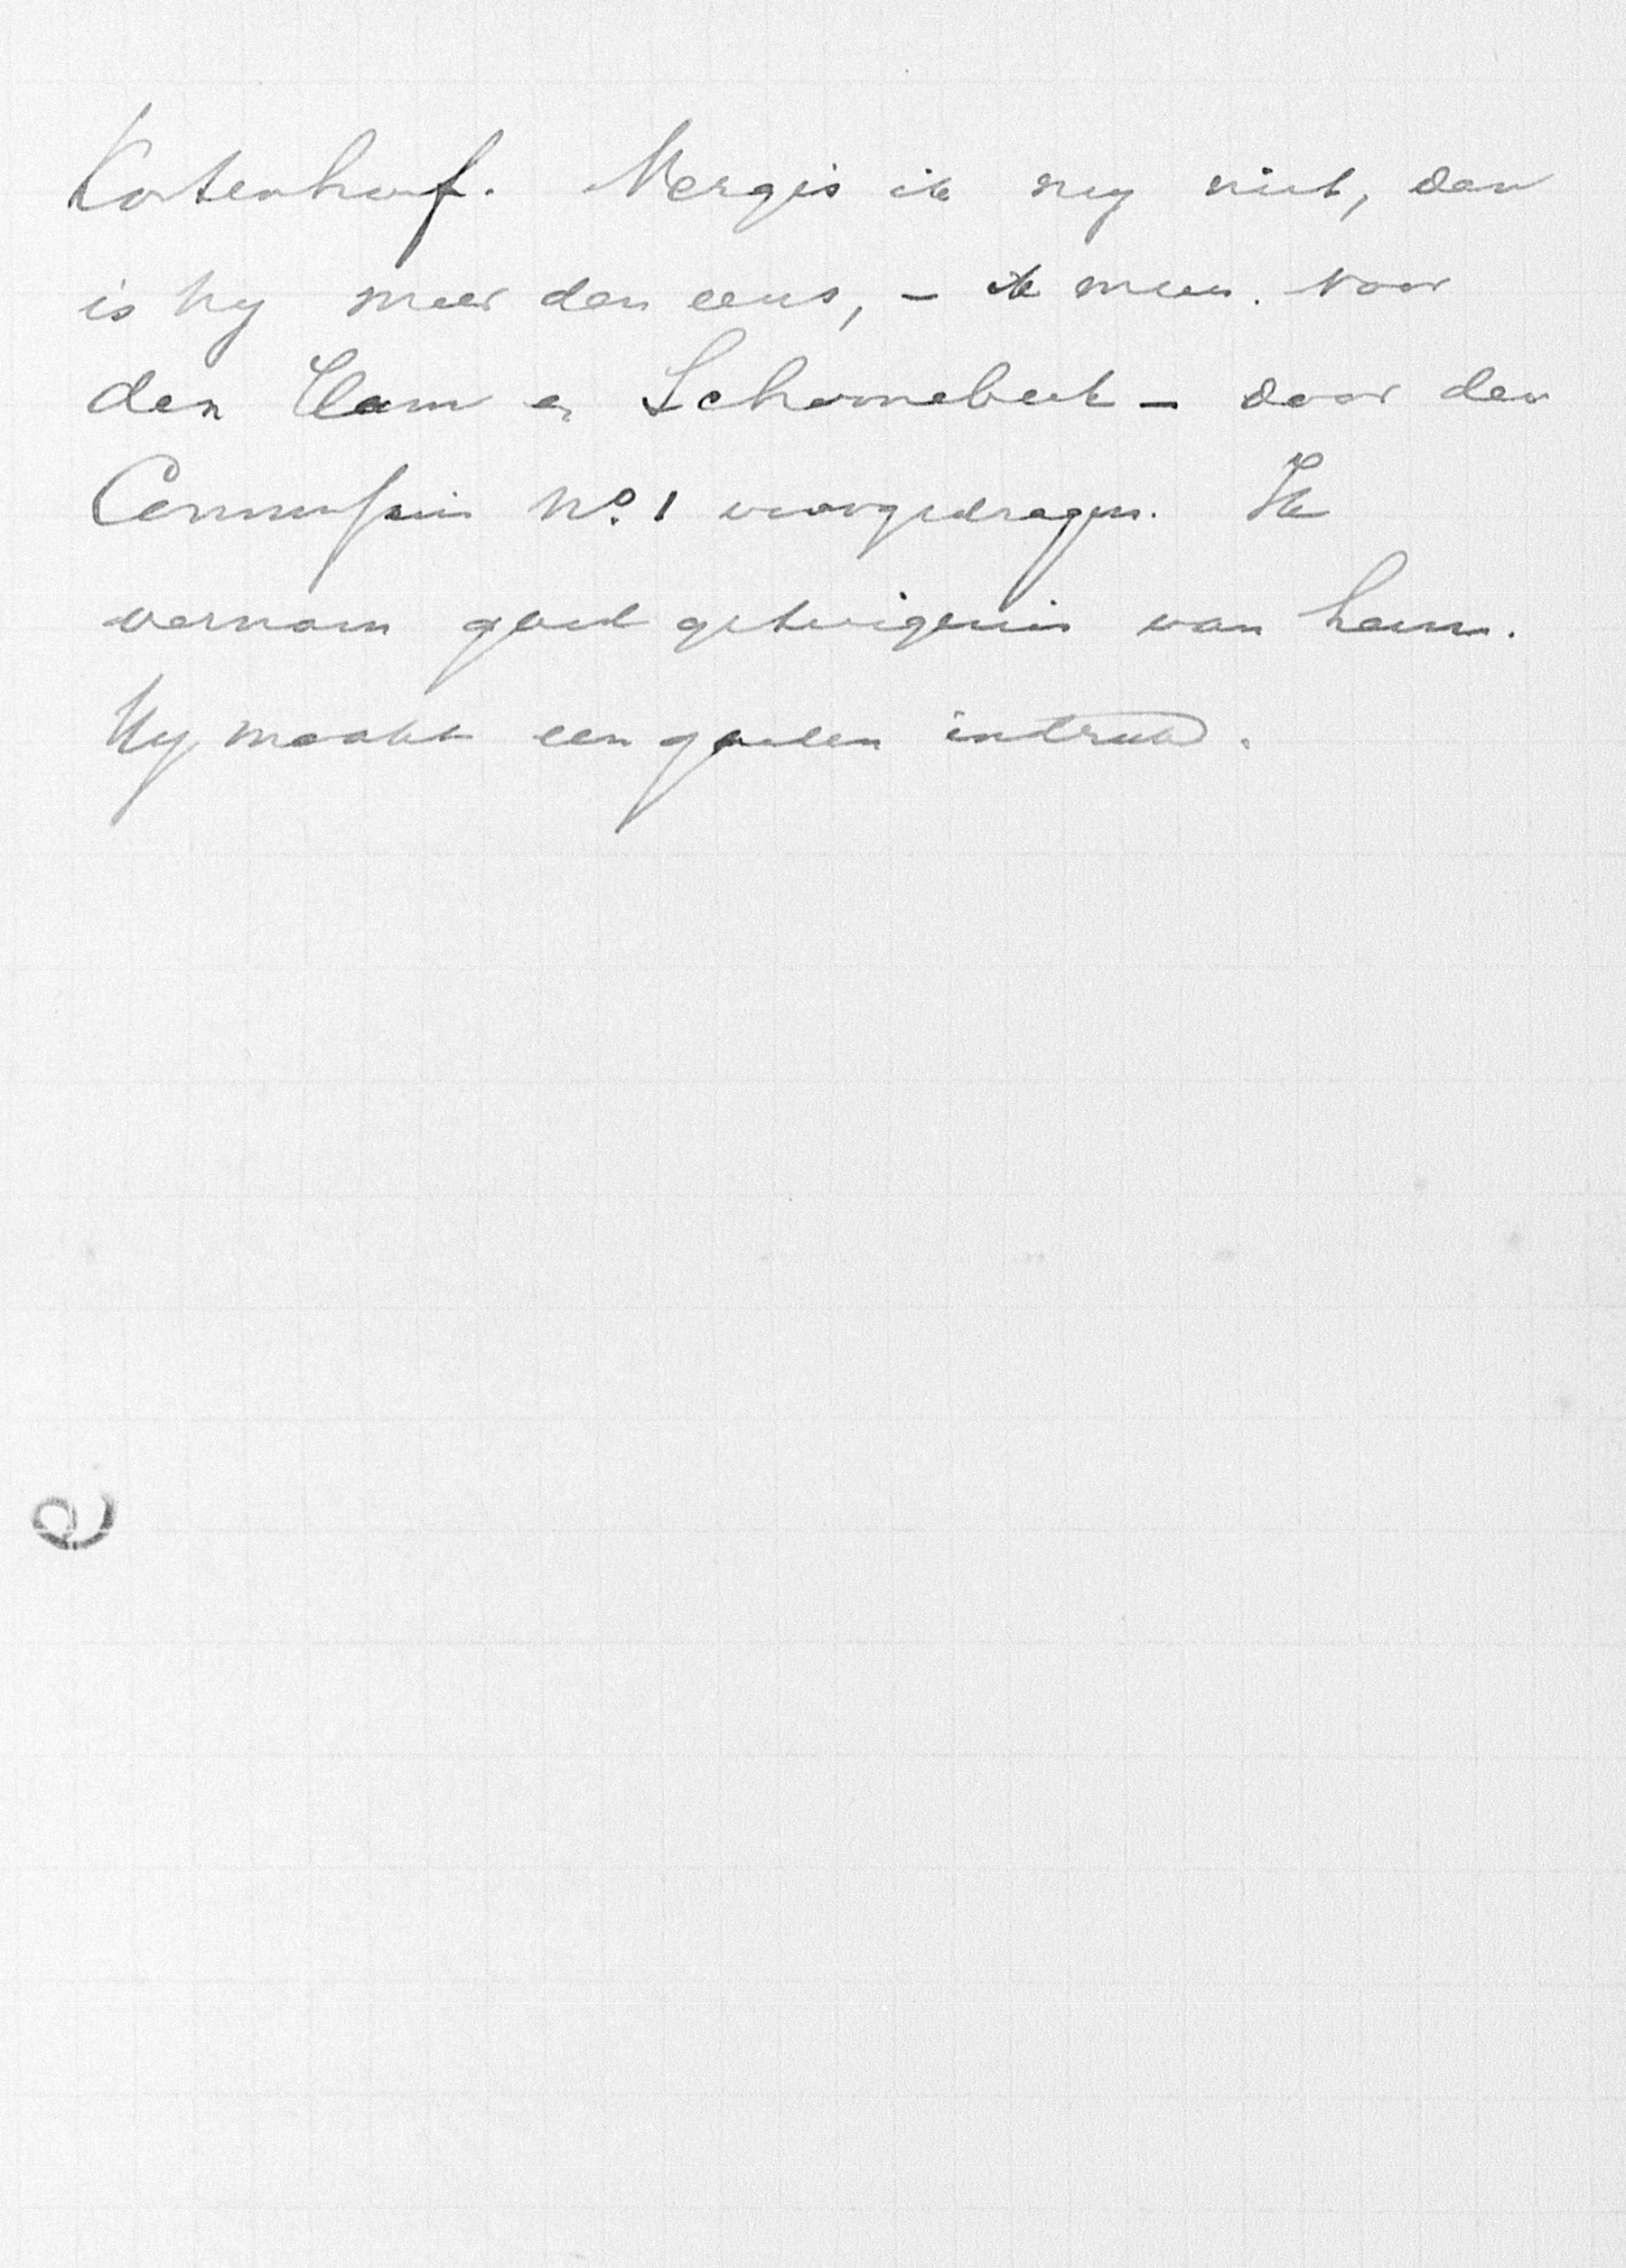 Kortenhoef. Vergis ik my niet, dan
is hy meer dan eens, – ik meen voor
den Ham en Schoonebeek – door den
Commissaris No. 1 voorgedragen. Ik
vernam goed getuigenis van hem.
Hy maakt een goeden indruk.